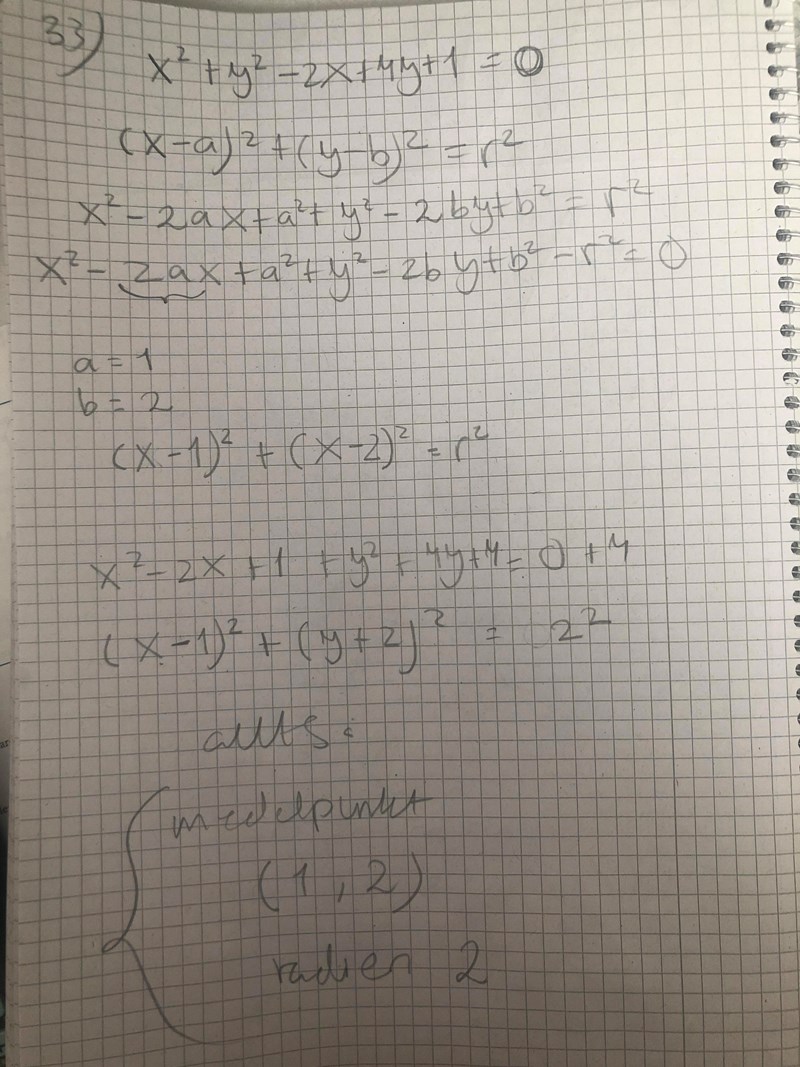 33)
x² + y² - 2x + 4y + 1 = 0
(x-a)² + (y-b)² = r²
x² - 2ax + a² + y² - 2by + b² = r²
x² - 2ax + a² + y² - 2by + b² - r² = 0
a = 1
b = 2
(x-1)² + (x-2)² = r²
x² - 2x + 1 + y² + 4y + 4 = 0 + 4
(x-1)² + (y+2)² = 2²
allts:
medelpunkt
(1, 2)
radien 2